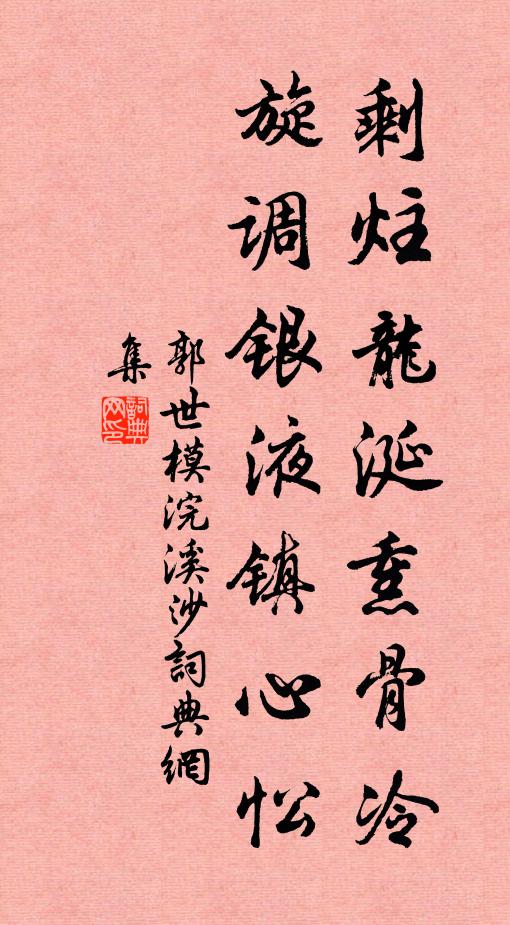 剩炷龍涎熏骨冷
旋调銀液镇心忪
郭世模浣溪沙詞典網
集
詞典網印